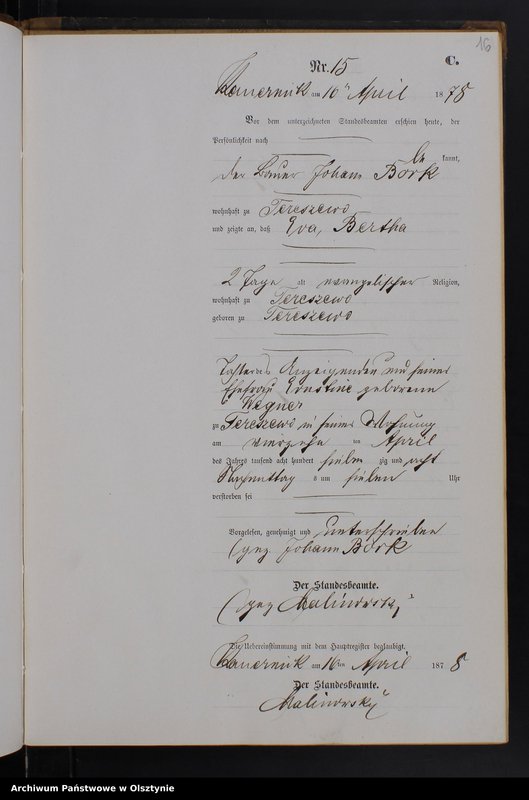 16
Nr. 15
C.
Kauernick am 16 April 1878
Vor dem unterzeichneten Standesbeamten erschien heute, der
Persönlichkeit nach
be kannt,
der Bauer Johann Bork
wohnhaft zu Tereszewo
und zeigte an, daß Eva, Bertha
2 Tage alt evangelischer Religion,
wohnhaft zu Tereszewo
geboren zu Tereszewo
Tochter des Anzeigenden und seiner
Ehefrau Ernstine geborene
Wegner
zu Tereszewo in seiner Wohnung
am vierzehn ten April
des Jahres tausend acht hundert sieben zig und acht
Nachmittag s um sieben Uhr
verstorben sei
Vorgelesen, genehmigt und unterschrieben
(gez. Johann Bork
Der Standesbeamte.
(gez Malinowsky
Die Uebereinstimmung mit dem Hauptregister beglaubigt.
Kauernick am 16ten April 1878
Der Standesbeamte.
Malinowsky
Archiwum Państwowe w Olsztynie